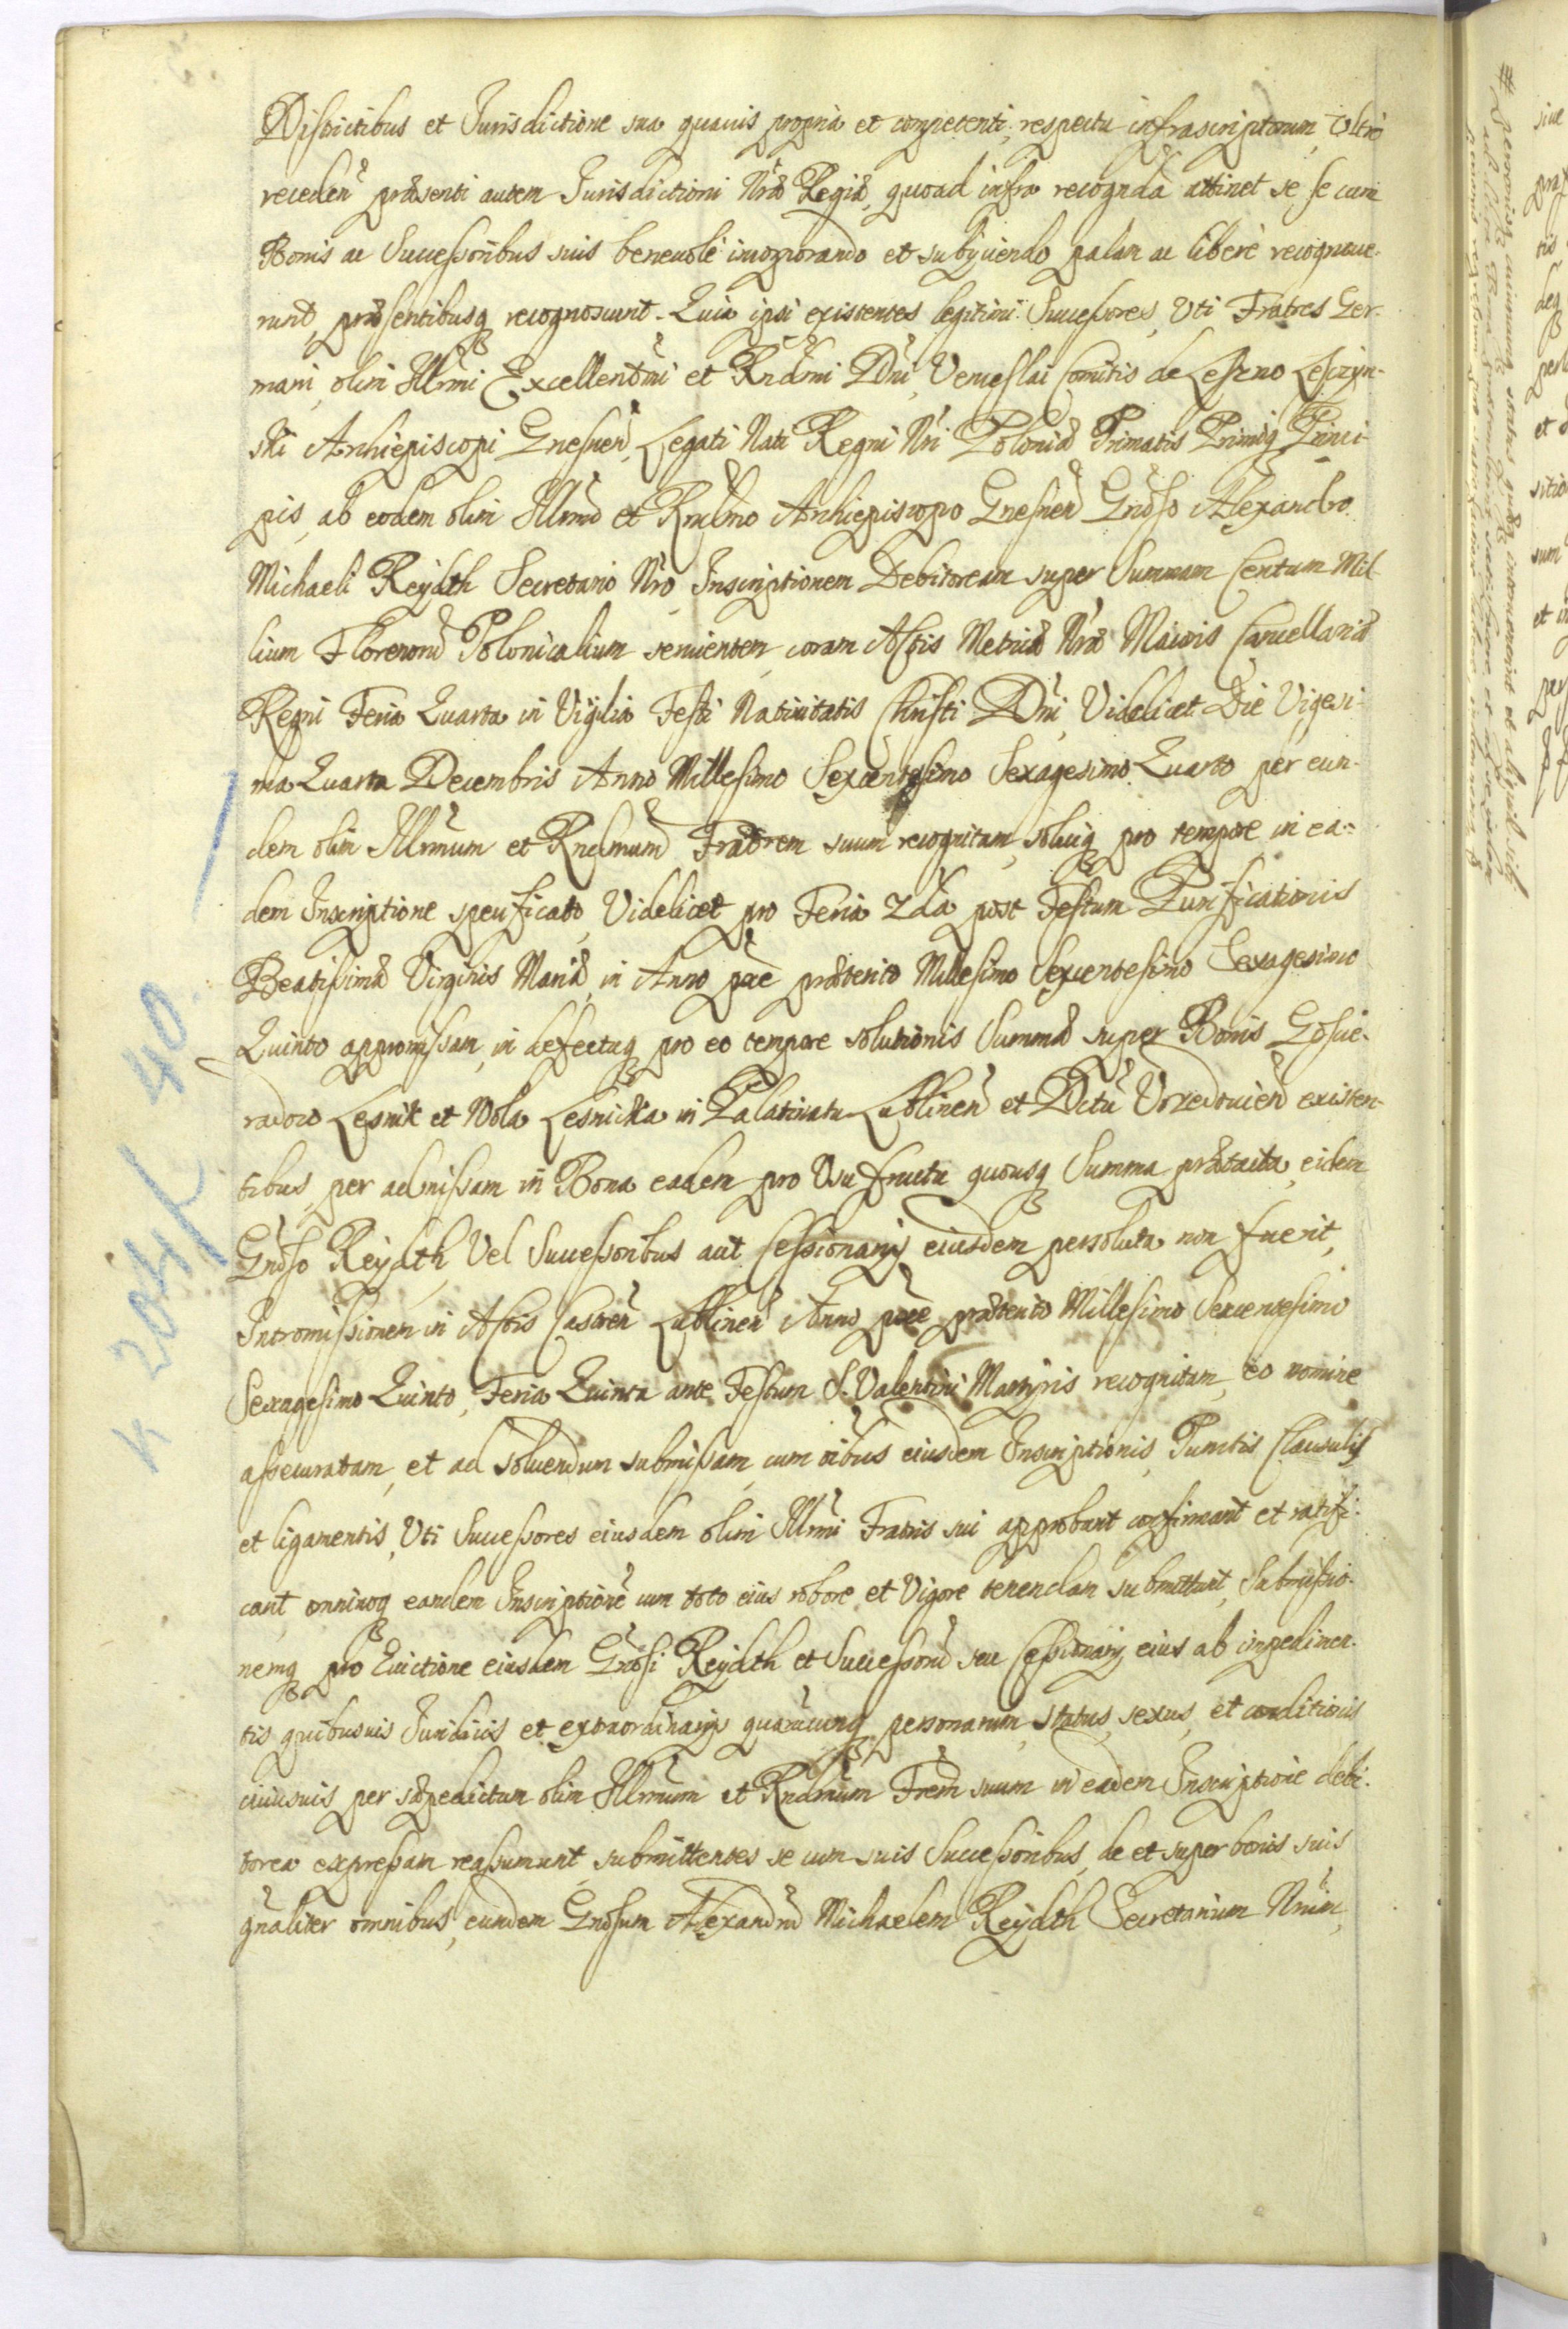 Districtibus et Jurisdictione sua quauis propria et competenti, respectu infrascriptorum, Vltro
receden̄ præsenti autem Jurisdictioni Nr̄æ Regiæ, quoad infra recognda attinet se se cum
Bonis ac Successoribus suis beneuolè incorporando et subijciendo palam ac liberè recognoue-
runt, præsentibusq recognoscunt. Quia ipsi existentes legitimi Successores, Vti Fratres Ger-
mani, olim Illr̄mi Excellentmi et Rndmi Dn̄i Venceslai Comitis de Leszno Leszczyn-
ski Archiepiscopi Gnesnen̄ Legati Nati Regni Nr̄i Poloniæ Primatis Primiq Princi-
pis, ab eodem olim Illrmo et Rndmo Archiepiscopo Gnesnen̄ Gnoso Alexandro
Michaeli Reydth Secretario Nr̄o Inscriptionem Debitoream super Summam Centum Mil-
lium Florenorū Polonicalium seruientem, coram Actis Metricæ Nr̄æ Maioris Cancellariæ
Regni Feria Quarta in Vigilia Festi Natiuitatis Christi Dn̄i, Videlicet Die Vigesi-
ma Quarta Decembris Anno Millesimo Sexcentesimo Sexagesimo Quarto per eun-
dem olim Illrmum et Rndmum Fratrem suum recognitam, soluiq pro tempore in ea-
dem Inscriptione specificato, Videlicet pro Feria 2da post Festum Purificationis
Beatissimæ Virginis Mariæ, in Anno proxe præterito Millesimo Sexcentesimo Sexagesimo
Quinto appromissam, in defectuq pro eo tempore solutionis Summæ super Bonis Goscie-
radow Lesnik et Wola Lesnicka in Palatinatu Lublinen̄ et Dctū Vrzedouien̄ existen-
tibus, per admissam in Bona eadem pro Vsu fructu quousq Summa prætacta, eidem
Gnoso Reydth, Vel Successoribus aut Cessionarijs eiusdem persoluta non fuerit,
Intromissionem in Actis Castren̄ Lublinen̄ Anno proxe præterito Millesimo Sexcentesimo
Sexagesimo Quinto, Feria Quinta ante Festum S. Valentini Martyris recognitam, eo nomine
assecuratam, et ad soluendum submissam, cum oibus eiusdem Inscriptionis, Punctis Clausulis
et ligamentis, Vti Successores eiusdem olim Illrmi Fratris sui approbant confirmant et ratifi-
cant, omninoq eandem Inscriptionē cum toto eius robore et Vigore tenendam submittunt, Submissio-
nemq pro Euictione eiusdem Gnosi Reydth et Successorū seu Cessionarij eius ab impedimen-
tis quibusuis Juridicis et extraordinarijs quarūcunq personarum, status, sexus, et conditionis
cuiusuis per sæpedictum olim Illrmum et Rndmum Frem suum in eadem Inscriptione debi-
torea expressam reassumunt, submittentes se cum suis Successoribus, de et super bonis suis
gn̄aliter omnibus, eundem Gnosum Alexandrū Michaelem Reydth Secretarium Nrum,